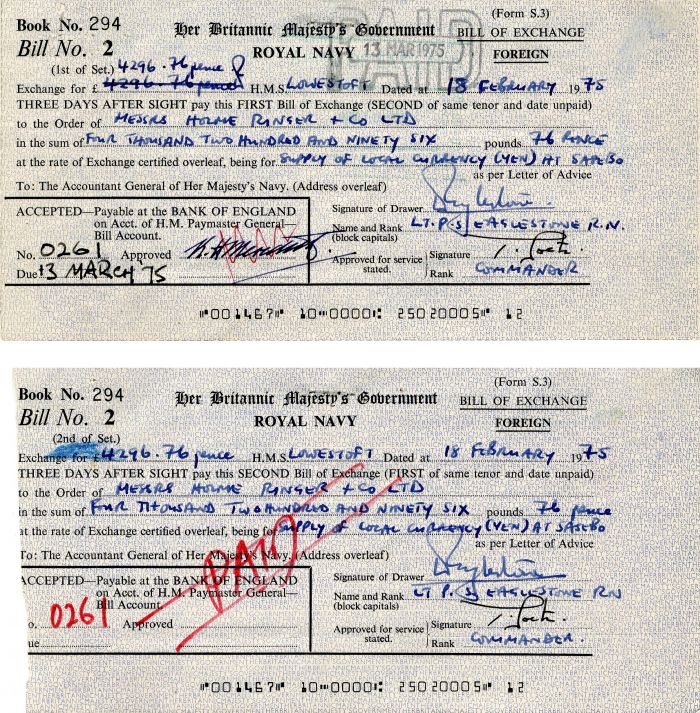 (Form S.3)
Book No. 294 Her Britannic Majesty's Government BILL OF EXCHANGE
Bill No. 2 ROYAL NAVY FOREIGN
PAID
13 MAR 1975
(1st of Set.) 4296.76 pence
Exchange for £ 4296.76 pence H.M.S LOWESTOFT Dated at 18 FEBRUARY 1975
THREE DAYS AFTER SIGHT pay this FIRST Bill of Exchange (SECOND of same tenor and date unpaid)
to the Order of MESSRS HOLME RINGER + CO LTD
in the sum of FOUR THOUSAND TWO HUNDRED AND NINETY SIX pounds 76 PENCE
at the rate of Exchange certified overleaf, being for SUPPLY OF LOCAL CURRENCY (YEN) AT SASEBO
as per Letter of Advice
To: The Accountant General of Her Majesty's Navy. (Address overleaf)
ACCEPTED—Payable at the BANK OF ENGLAND Signature of Drawer
on Acct. of H.M. Paymaster General— Name and Rank LT. P. (S) EAGLESTONE R.N.
Bill Account. (block capitals)
No. 0261 Approved Approved for service stated. Signature
Due 13 MARCH 75 Rank COMMANDER
⑈001467⑈ 10⑉0000⑆ 25020005⑈ 12
(Form S.3)
Book No. 294 Her Britannic Majesty's Government BILL OF EXCHANGE
Bill No. 2 ROYAL NAVY FOREIGN
(2nd of Set.)
Exchange for £ 4296.76 pence H.M.S LOWESTOFT Dated at 18 FEBRUARY 1975
THREE DAYS AFTER SIGHT pay this SECOND Bill of Exchange (FIRST of same tenor and date unpaid)
to the Order of MESSRS HOLME RINGER + CO LTD
in the sum of FOUR THOUSAND TWO HUNDRED AND NINETY SIX pounds 76 pence
at the rate of Exchange certified overleaf, being for SUPPLY OF LOCAL CURRENCY (YEN) AT SASEBO
as per Letter of Advice
To: The Accountant General of Her Majesty's Navy. (Address overleaf)
PAID
ACCEPTED—Payable at the BANK OF ENGLAND Signature of Drawer
on Acct. of H.M. Paymaster General— Name and Rank LT P. (S) EAGLESTONE R.N
Bill Account. (block capitals)
o. 0261 Approved Approved for service stated. Signature
ue Rank COMMANDER.
⑈001467⑈ 10⑉0000⑆ 25020005⑈ 12